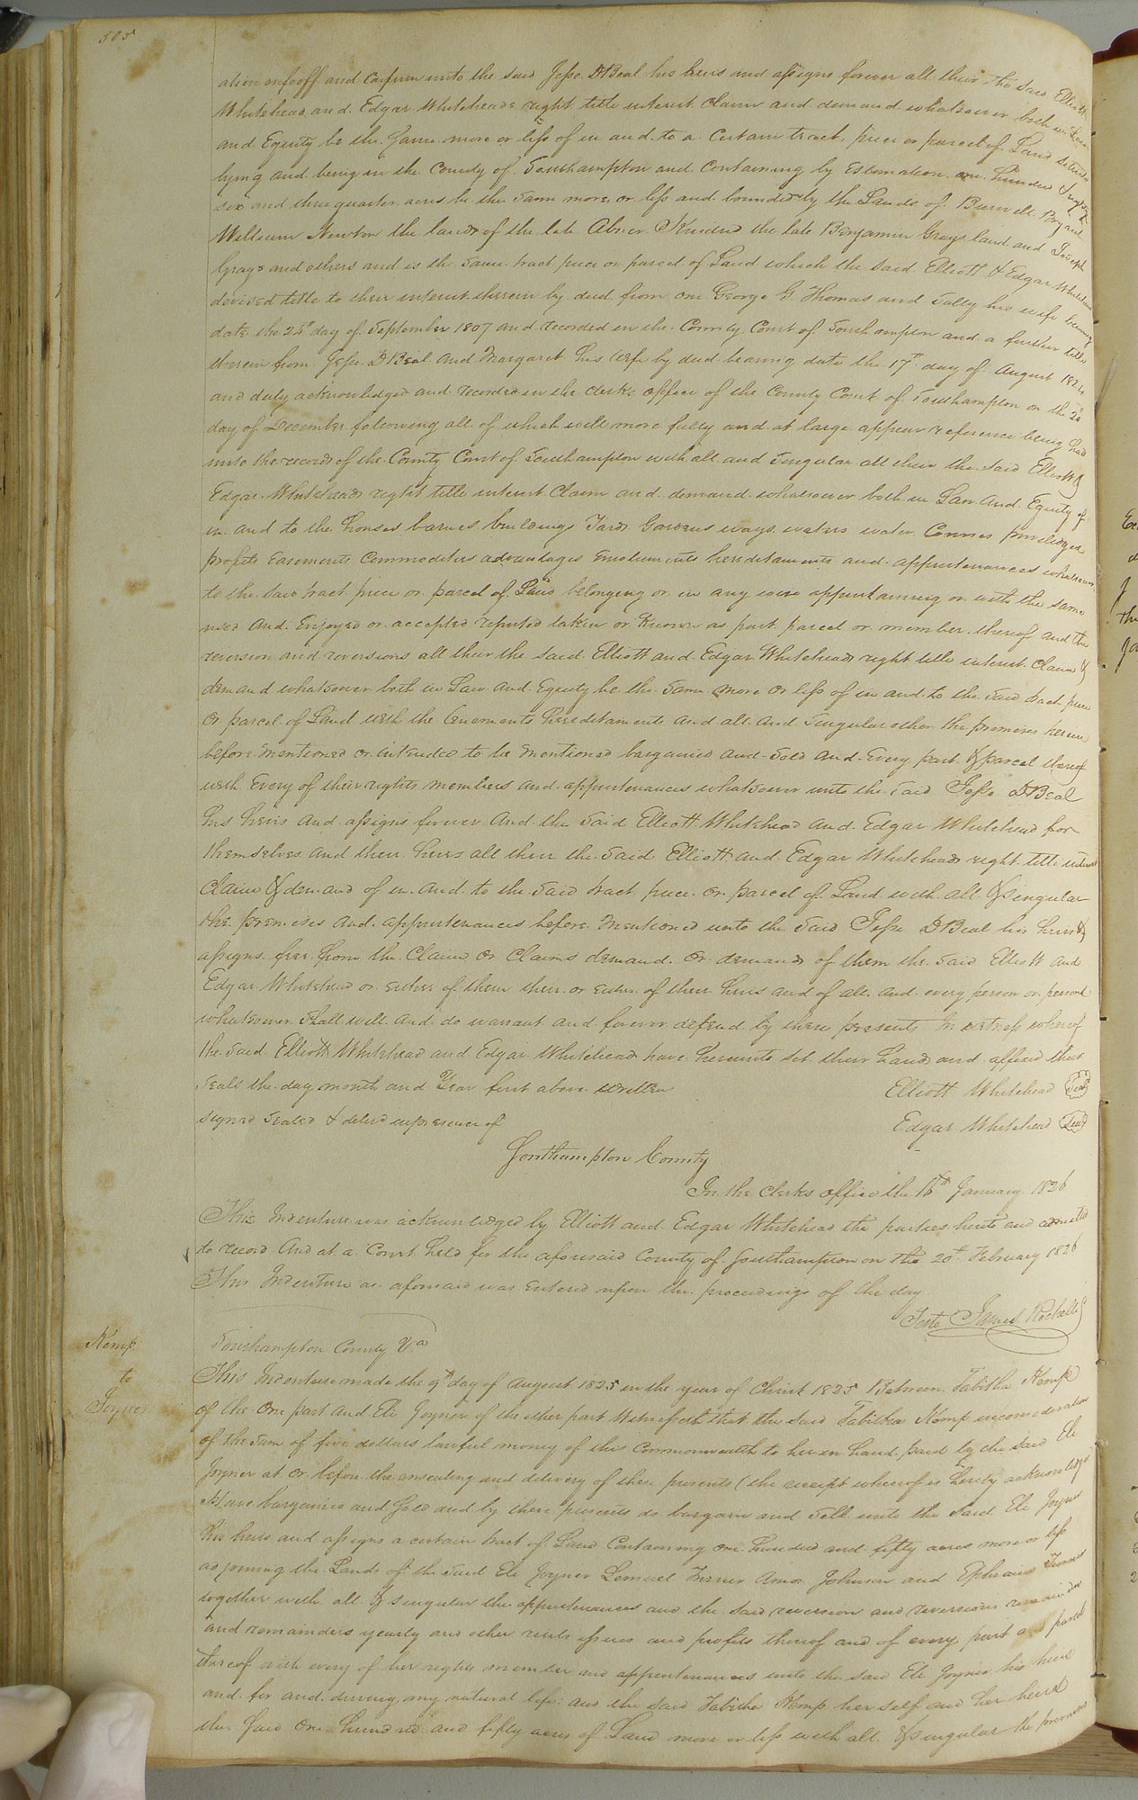 505
alien enfeoff and Confirm unto the said Jesse D Beal his heirs and assigns forever all their the said Elliott
Whitehead and Edgar Whiteheads right title interest Claim and demand whatsoever both in Law
and Equity be the same more or less of in and to a Certain tract piece or parcel of Land situate
lying and being in the County of Southampton and Containing by Estimation one hundred &
six and three quarter acres be the same more or less and bounded by the Lands of Burwell Bryant
William Newton the lands of the late Abner Kindred the late Benjamin Grays land and Joseph
Grays and others and is the same tract piece or parcel of Land which the said Elliott & Edgar Whitehead
derived title to their interest therein by deed from one George G. Thomas and Sally his wife bearing
date the 24th day of September 1807 and recorded in the County Court of Southampton and a further title
therein from Jesse D Beal and Margaret his wife by deed bearing date the 17th day of August 182
and duly acknowledged and recorded in the clerks office of the County Court of Southampton on the 20
day of December following all of which will more fully and at large appear reference being had
unto the records of the County Court of Southampton with all and singular all their the said Elliott &
Edgar Whiteheads right title interest Claim and demand whatsoever both in Law And Equity of
in and to the houses barnes buildings Yards Gardens ways waters water Corses priviledges
profits Easements Commodities advantages Emoluments hereditaments and appurtenances whatsoever
to the said tract piece or parcel of Land belonging or in any wise appurtaining or with the same
used And Enjoyed or accepted reputed taken or known as part parcel or member thereof and the
reversion and reversions all their the said Elliott and Edgar Whiteheads right title interest Claim &
demand whatsoever both in Law And Equity be the same more or less of in and to the said tract piece
Or parcel of Land with the tenements hereditaments and all And Singular other the premises herein
before mentioned or intended to be mentioned bargained and sold And Every part & parcel thereof
with Every of their rights members and appurtenances whatsoever unto the said Jesse D Beal
his heirs And assigns forever And the said Elliott Whitehead And Edgar Whitehead for
themselves And their heirs all their the said Elliott and Edgar Whiteheads right title interest
Claim & demand of in And to the said tract piece or parcel of Land with all & singular
the premises And appurtenances before mentioned unto the said Jesse D Beal his heirs &
assigns free from the Claim or Claims demand or demands of them the said Elliott and
Edgar Whitehead or Either of them their or Either of their heirs and of all and every person or persons
whatsoever Shall will And do warrant and forever defend by these presents In witness whereof
the said Elliott Whitehead and Edgar Whitehead have hereunto set their hands and affixed their
seals the day month and Year first above written
Elliott Whitehead Seal
signed sealed & delivd in presence of
Edgar Whitehead Seal
Southampton County
In the clerks office the 16th January 1826
This Indenture was acknowledged by Elliott and Edgar Whitehead the parties hereto and admitted
to record And at a Court held for the aforesaid County of Southampton on the 20th February 1826
This Indenture as aforesaid was Entered upon the proceedings of the day
Teste James Rochelle
Southampton County Va
Kemp
to
Joyner
This Indenture made the 9th day of August 1825 in the year of Christ 1825 Between Tabitha Kemp
of the One part And Eli Joyner of the other part Witnesseth that the said Tabitha Kemp in consideration
of the sum of five dollars lawful money of this Commonwealth to her in hand paid by the said Eli
Joyner at or before the ensealing and delivery of these presents (the receipt whereof is hereby acknowledged
Have bargained and Sold and by these presents do bargain and sell unto the said Eli Joyner
his heirs and assigns a certain tract of Land Containing one hundred and fifty acres more or less
adjoining the Lands of the said Eli Joyner Lemuel Turner Amos Johnson and Ephraim
together with all & singular the appurtenances and the said reversion and reversions remainder
and remainders yearly and other rents issues and profits thereof and of every part and parcel
thereof with every of her rights member and appurtenances unto the said Eli Joyner his heirs
and for and during any natural life and the said Tabitha Kemp her self and her heirs
the said One hundred and fifty acres of Land more or less with all & singular the premises